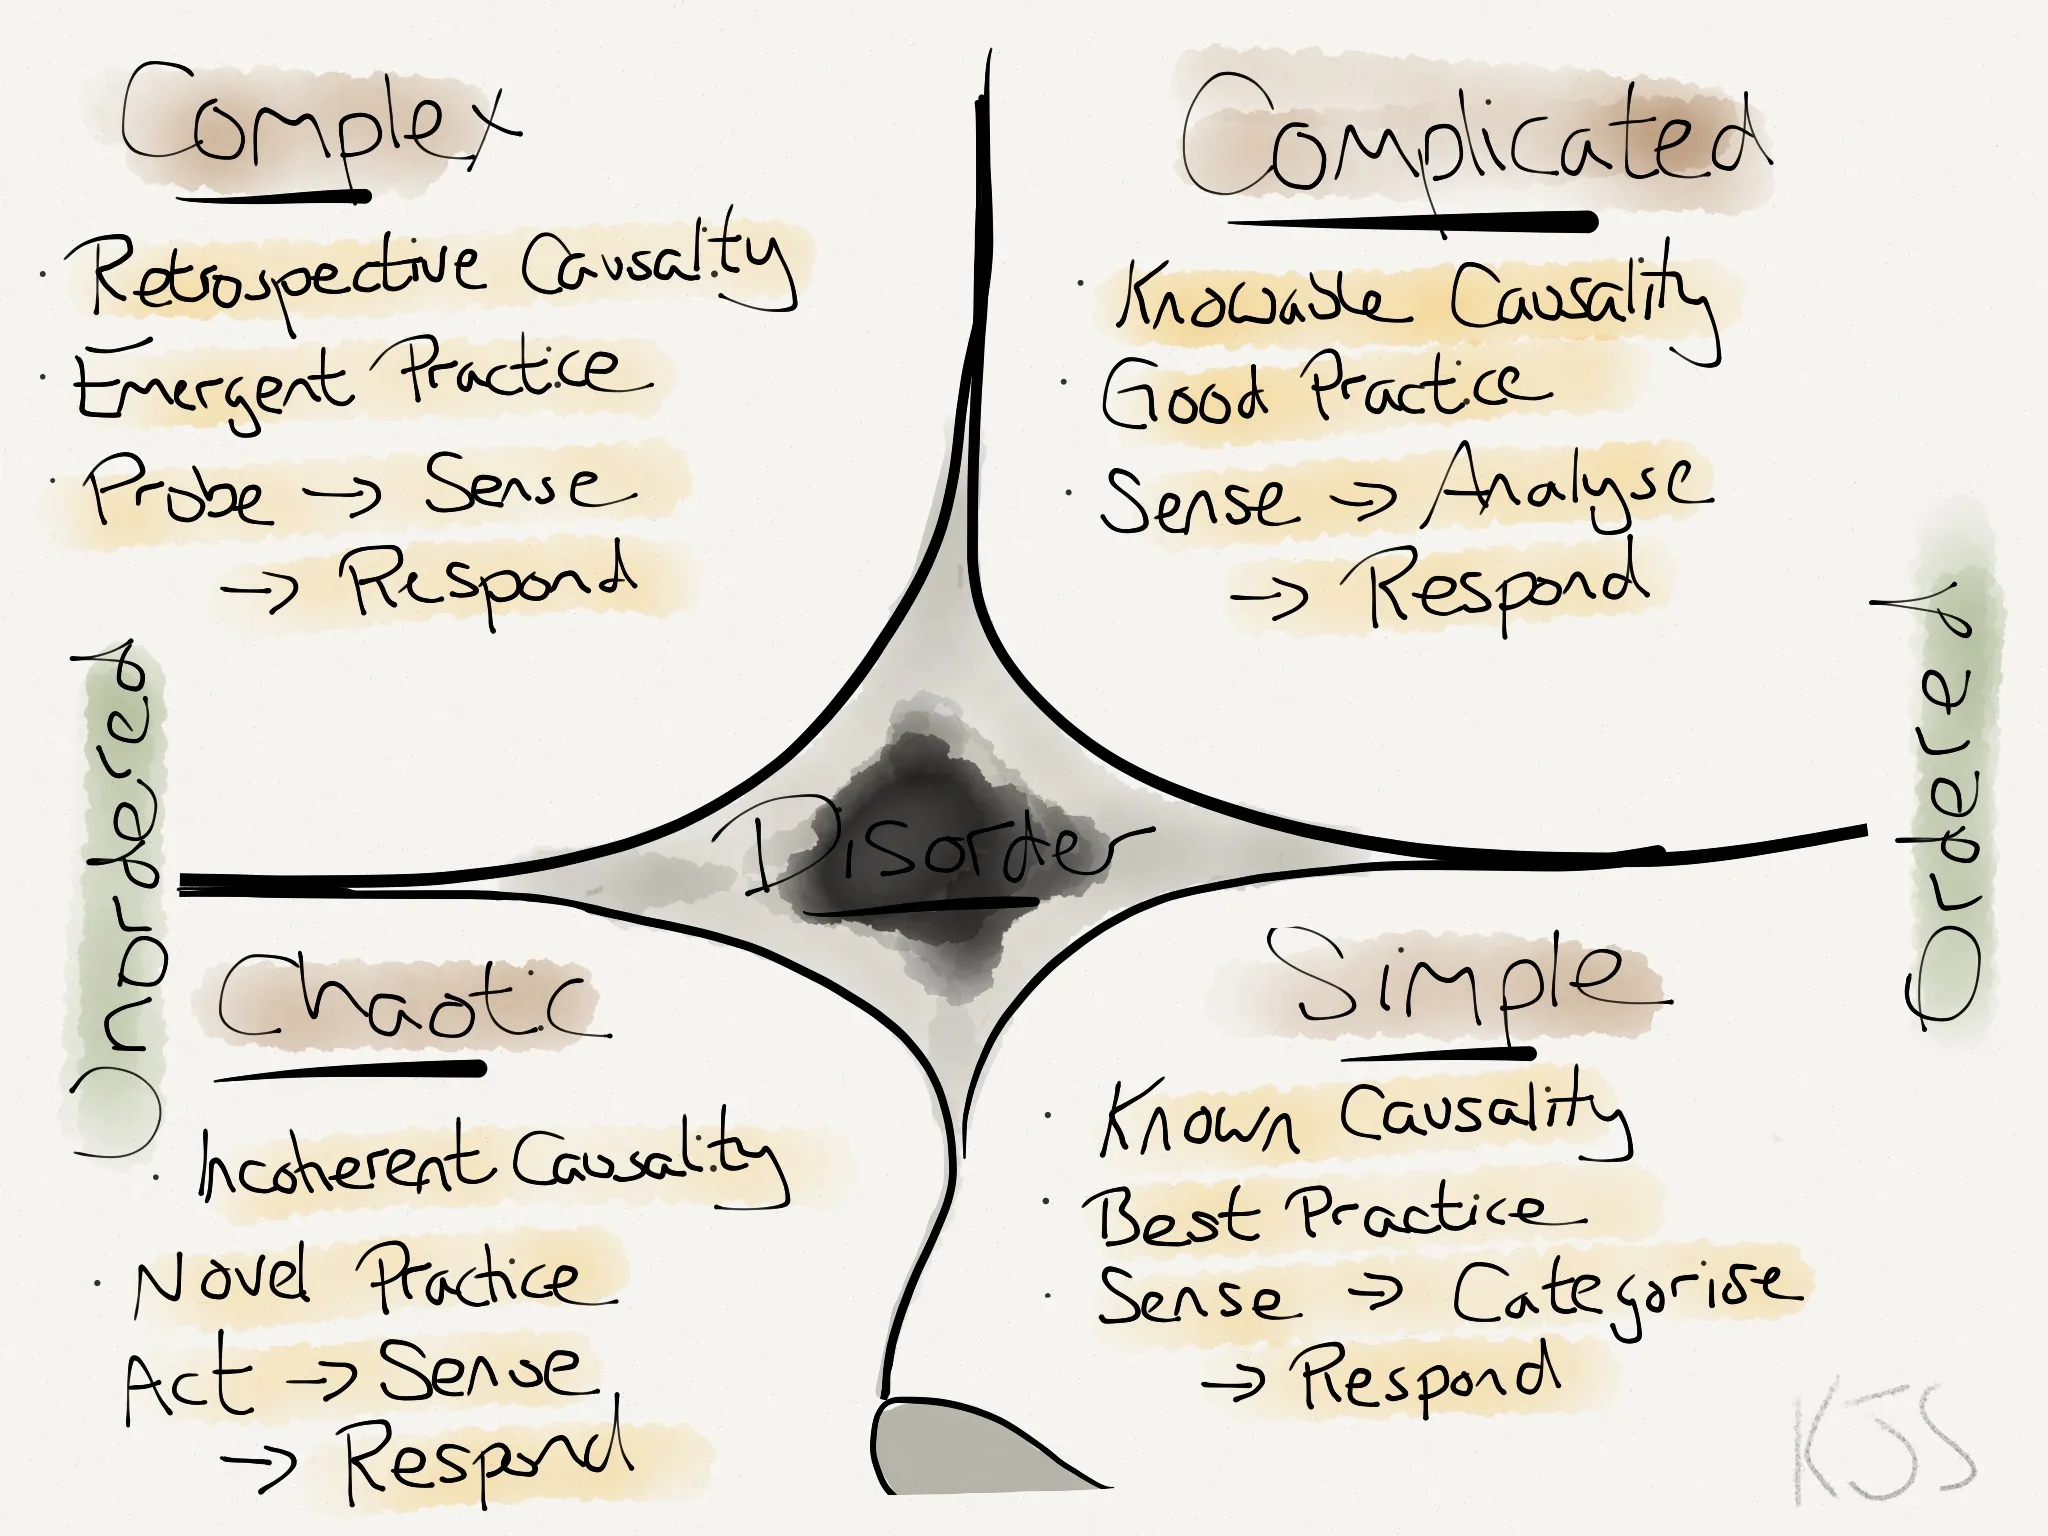 Complex
Retrospective Causality
Emergent Practice
Probe → Sense
→ Respond
Complicated
Knowable Causality
Good Practice
Sense → Analyse
→ Respond
Unordered
Ordered
Disorder
Chaotic
Incoherent Causality
Novel Practice
Act → Sense
→ Respond
Simple
Known Causality
Best Practice
Sense → Categorise
→ Respond
KJS